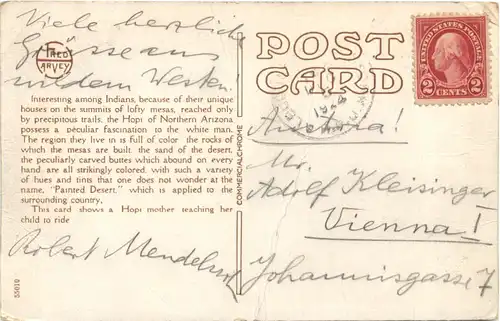 Viele herzliche
Grüsse aus
wildem Westen!
FRED
HARVEY
Interesting among Indians, because of their unique
houses on the summits of lofty mesas, reached only
by precipitous trails, the Hopi of Northern Arizona
possess a peculiar fascination to the white man.
The region they live in is full of color the rocks of
which the mesas are built, the sand of the desert,
the peculiarly carved buttes which abound on every
hand, are all strikingly colored, with such a variety of
hues and tints that one does not wonder at the
name, "Painted Desert," which is applied to the
surrounding country.
This card shows a Hopi mother teaching her
child to ride
Robert Mendelssohn
55019
COMMERCIALCHROME
POST
CARD
UNITED STATES POSTAGE
2 CENTS 2
Austria!
Mr.
Adolf Kleisinger
Vienna I
Johannisgasse 7